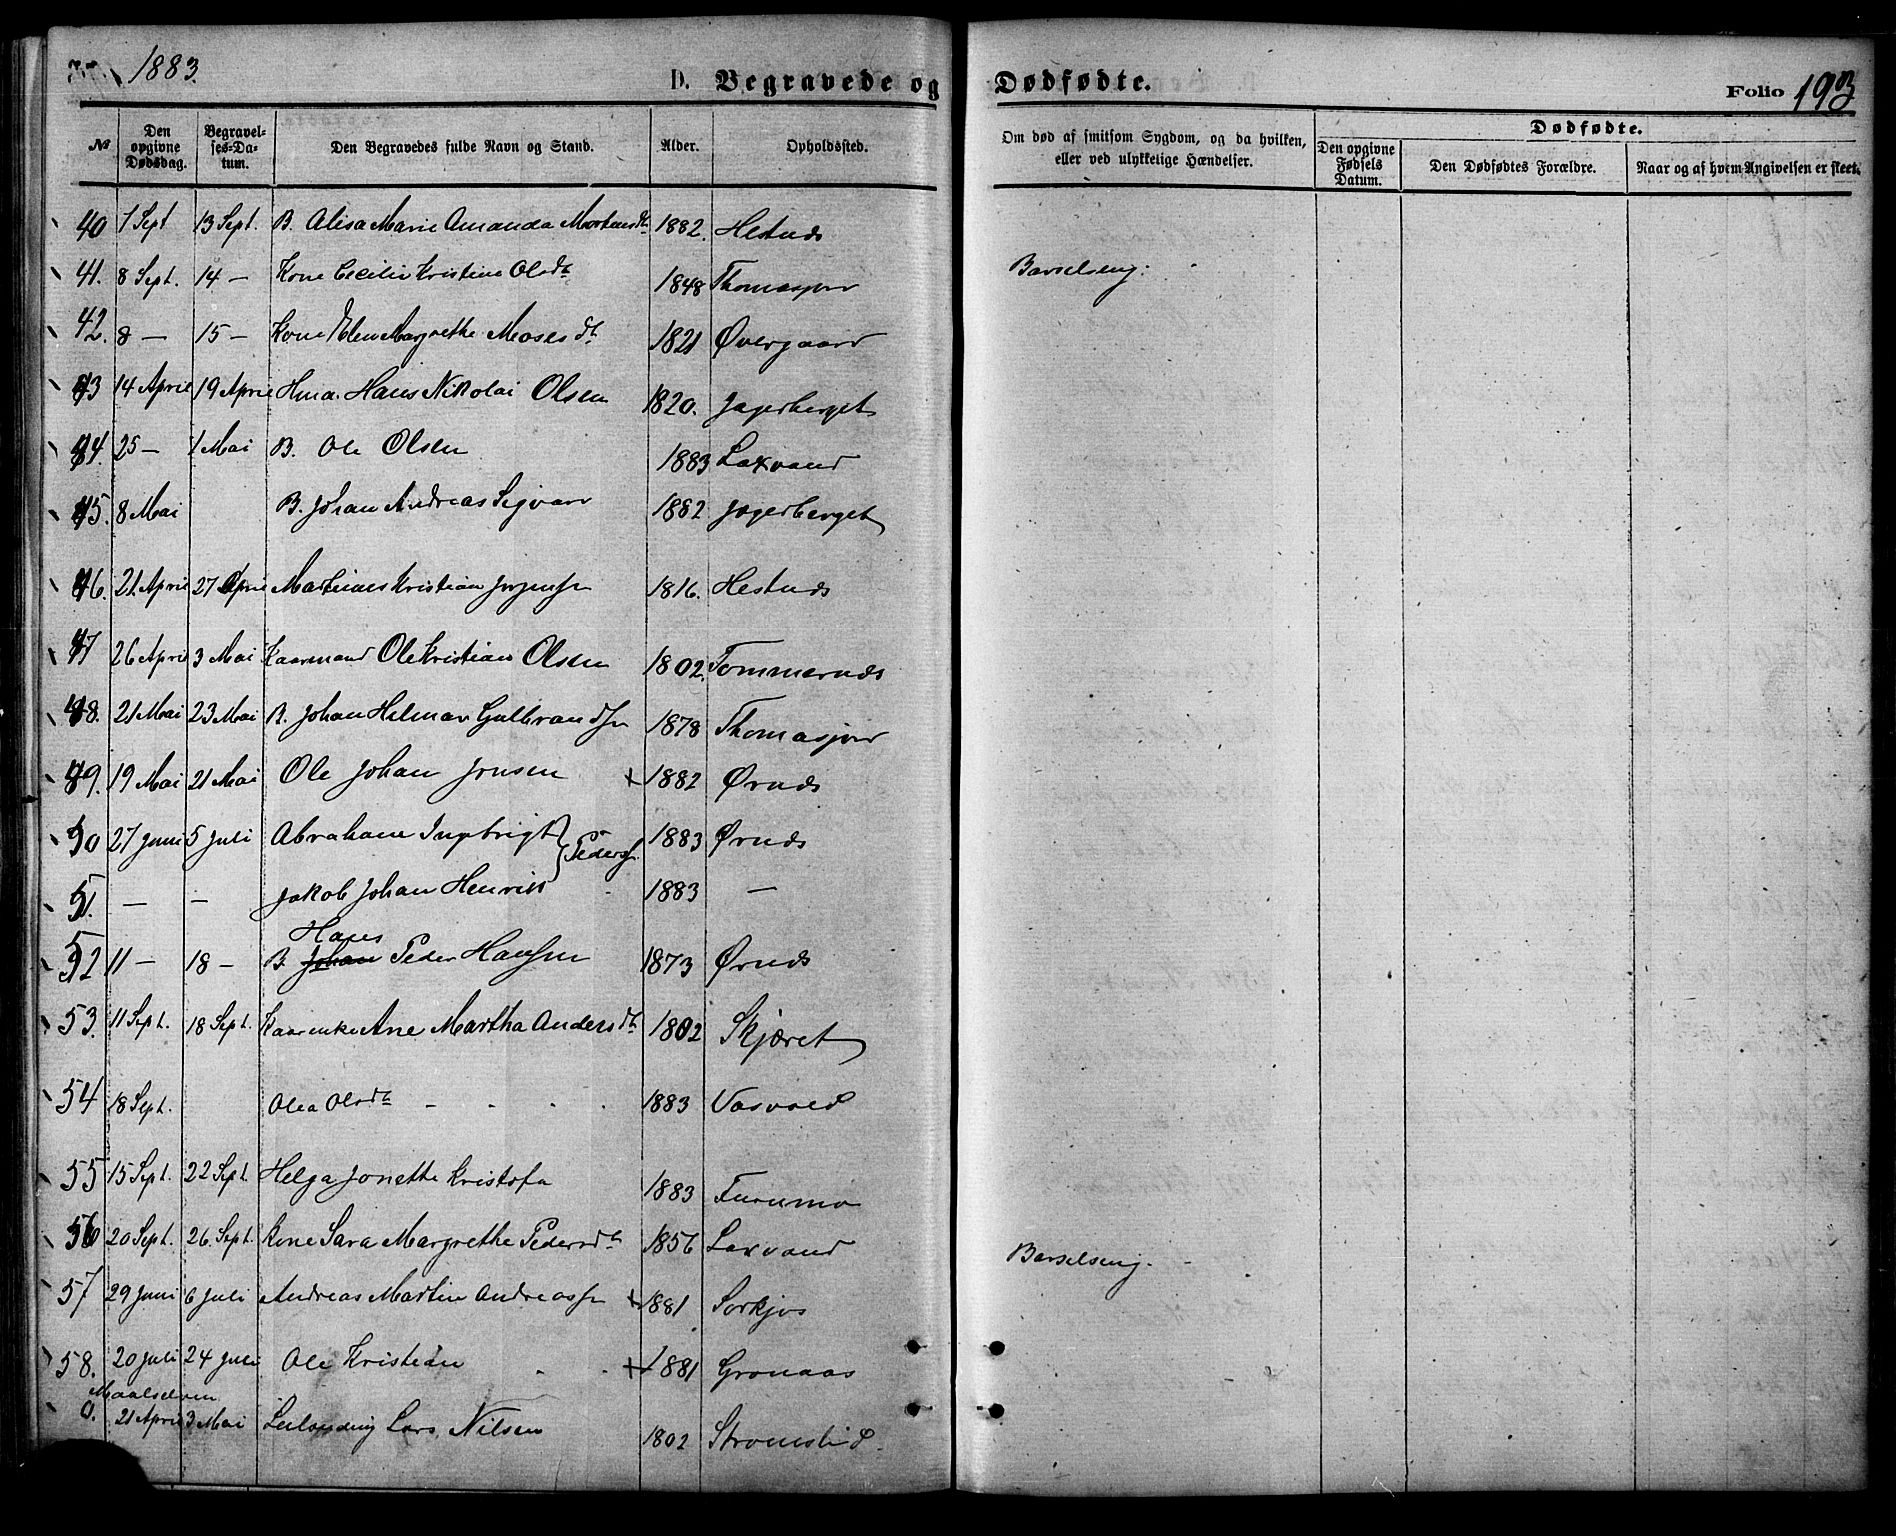 1883.
D. Begravede og Dødfødte.
Folio 193
№ Den opgivne Dødsdag. Begravelses-Datum. Den Begravedes fulde Navn og Stand. Alder. Opholdssted. Om død af smitsom Sygdom, og da hvilken, eller ved ulykkelige Hændelser. Dødfødte. Den opgivne Fødsels Datum. Den Dødfødtes Forældre. Naar og af hvem Angivelsen er skeet.
40 1 Sept 13 Sept. B. Alisa Marie Amanda Mortensdt 1882. Hestnds
41. 8 Sept. 14 — Kone Cecilie Kristine Olsdt 1848 Barselseng.
42. 8 — 15 — Kone Elen Margrethe Mosesdt 1821 Øvergaard
43 14 April 19 April Hmd. Hans Nikolai Olsen 1820. Jagerberget
44. 25 — 1 Mai B. Ole Olsen 1883 Laxvand
45. 8 Mai B. Johan Andreas Sigvart 1882 Jagerberget
46. 21 April 27 April Kristian 1816. Hestnds
47 26 April 3 Mai Kaarmand Ole Kristian Olsen 1802. Tommernds
48. 21 Mai 23 Mai B. Johan Hilmar Gulbrandsn 1878 Thomasjord
49. 19 Mai 21 Mai Ole Johan Jonsen + 1882 Ørnds
50 27 Juni 5 Juli Abraham Ingebrigt } Pedersn 1883 Ørnds
51. — — Jakob Johan Henrik 1883 —
Hans
52 11 — 18 — B. Johan Peder Hansen 1873 Ørnds
53. 11 Sept. 18 Sept. Kaarenke Ane Martha Andersdt 1802 Skjæret
54 18 Sept. Olea Olsdt 1883
55 15 Sept. 22 Sept. Helga Jonette Kristofa 1883 Furumo
56 20 Sept. 26. Sept. Kone Sara Margrethe Pedersdt 1856 Laxvand Barselseng.
57 29 Juni 6 Juli Andreas Martin Andreassn + 1881 Sorkjos
58. 20 Juli 24 Juli Ole Kristian + 1881 Gronaas
Maalselven
0. 21 April 3 Mai Lars Nilsen 1802